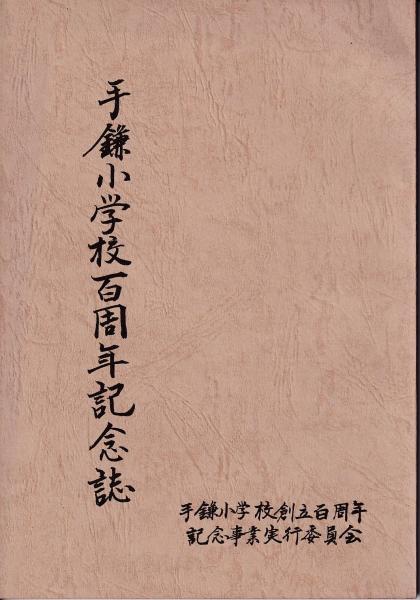 手鎌小学校百周年記念誌
手鎌小学校創立百周年
記念事業実行委員会